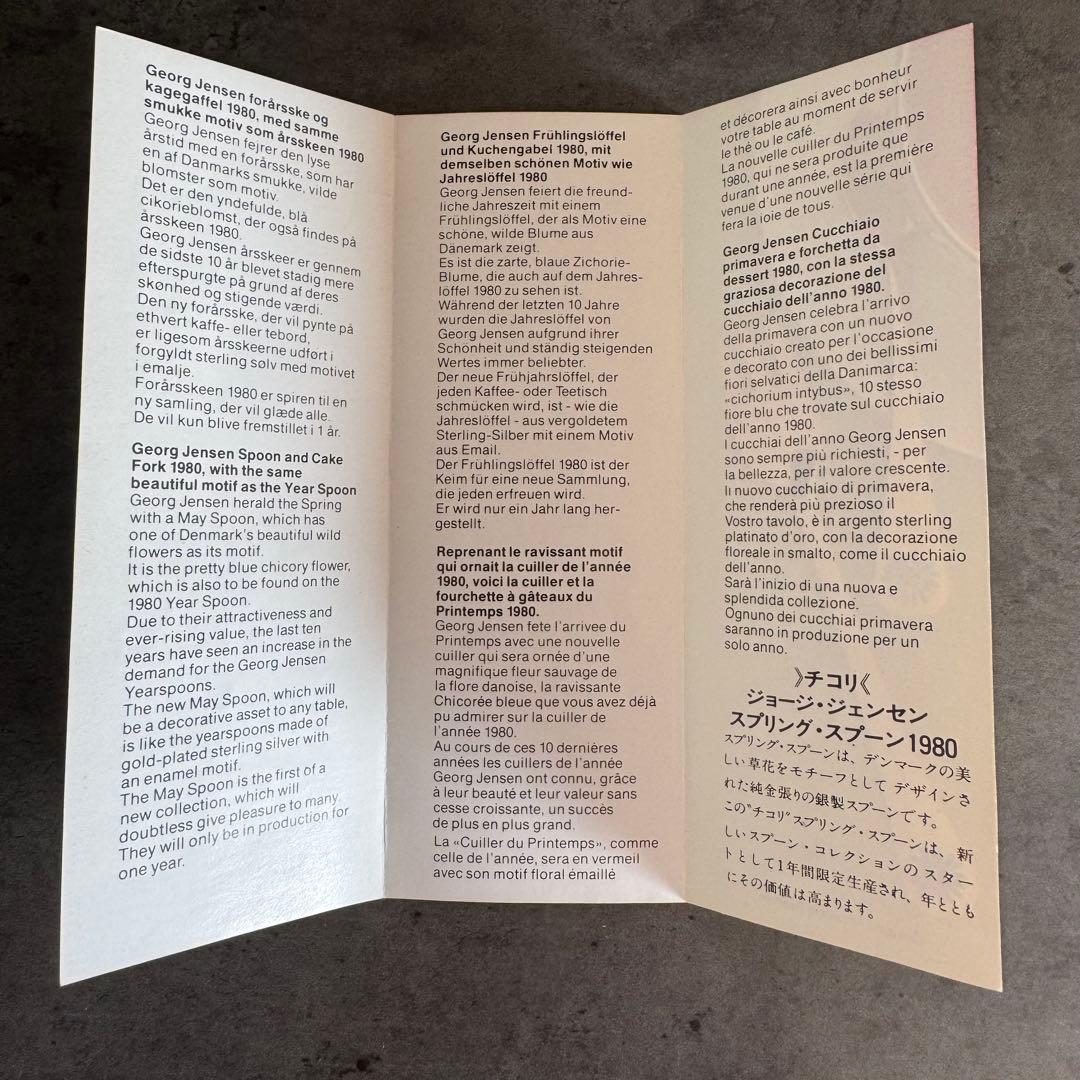 Georg Jensen forårsske og
kagegaffel 1980, med samme
smukke motiv som årsskeen 1980
Georg Jensen fejrer den lyse
årstid med en forårsske, som har
en af Danmarks smukke, vilde
blomster som motiv.
Det er den yndefulde, blå
cikorieblomst, der også findes på
årsskeen 1980.
Georg Jensen årsskeer er gennem
de sidste 10 år blevet stadig mere
efterspurgte på grund af deres
skønhed og stigende værdi.
Den ny forårsske, der vil pynte på
ethvert kaffe- eller tebord,
er ligesom årsskeerne udført i
forgyldt sterling sølv med motivet
i emalje.
Forårsskeen 1980 er spiren til en
ny samling, der vil glæde alle.
De vil kun blive fremstillet i 1 år.
Georg Jensen Spoon and Cake
Fork 1980, with the same
beautiful motif as the Year Spoon
Georg Jensen herald the Spring
with a May Spoon, which has
one of Denmark's beautiful wild
flowers as its motif.
It is the pretty blue chicory flower,
which is also to be found on the
1980 Year Spoon.
Due to their attractiveness and
ever-rising value, the last ten
years have seen an increase in the
demand for the Georg Jensen
Yearspoons.
The new May Spoon, which will
be a decorative asset to any table,
is like the yearspoons made of
gold-plated sterling silver with
an enamel motif.
The May Spoon is the first of a
new collection, which will
doubtless give pleasure to many.
They will only be in production for
one year.
Georg Jensen Frühlingslöffel
und Kuchengabel 1980, mit
demselben schönen Motiv wie
Jahreslöffel 1980
Georg Jensen feiert die freund-
liche Jahreszeit mit einem
Frühlingslöffel, der als Motiv eine
schöne, wilde Blume aus
Dänemark zeigt.
Es ist die zarte, blaue Zichorie-
Blume, die auch auf dem Jahres-
löffel 1980 zu sehen ist.
Während der letzten 10 Jahre
wurden die Jahreslöffel von
Georg Jensen aufgrund ihrer
Schönheit und ständig steigenden
Wertes immer beliebter.
Der neue Frühjahrslöffel, der
jeden Kaffee- oder Teetisch
schmücken wird, ist - wie die
Jahreslöffel - aus vergoldetem
Sterling-Silber mit einem Motiv
aus Email.
Der Frühlingslöffel 1980 ist der
Keim für eine neue Sammlung,
die jeden erfreuen wird.
Er wird nur ein Jahr lang her-
gestellt.
Reprenant le ravissant motif
qui ornait la cuiller de l'année
1980, voici la cuiller et la
fourchette à gâteaux du
Printemps 1980.
Georg Jensen fete l'arrivee du
Printemps avec une nouvelle
cuiller qui sera ornée d'une
magnifique fleur sauvage de
la flore danoise, la ravissante
Chicorée bleue que vous avez déjà
pu admirer sur la cuiller de
l'année 1980.
Au cours de ces 10 dernières
années les cuillers de l'année
Georg Jensen ont connu, grâce
à leur beauté et leur valeur sans
cesse croissante, un succès
de plus en plus grand.
La «Cuiller du Printemps», comme
celle de l'année, sera en vermeil
avec son motif floral émaillé
et décorera ainsi avec bonheur
votre table au moment de servir
le thé ou le café.
La nouvelle cuiller du Printemps
1980, qui ne sera produite que
durant une année, est la première
venue d'une nouvelle série qui
fera la ioie de tous.
Georg Jensen Cucchiaio
primavera e forchetta da
dessert 1980, con la stessa
graziosa decorazione del
cucchiaio dell'anno 1980.
Georg Jensen celebra l'arrivo
della primavera con un nuovo
cucchiaio creato per l'occasione
e decorato con uno dei bellissimi
fiori selvatici della Danimarca:
«cichorium intybus», 10 stesso
fiore blu che trovate sul cucchiaio
dell'anno 1980.
I cucchiai dell'anno Georg Jensen
sono sempre più richiesti, - per
la bellezza, per il valore crescente.
Il nuovo cucchiaio di primavera,
che renderà più prezioso il
Vostro tavolo, è in argento sterling
platinato d'oro, con la decorazione
floreale in smalto, come il cucchiaio
dell'anno.
Sarà l'inizio di una nuova e
splendida collezione.
Ognuno dei cucchiai primavera
saranno in produzione per un
solo anno.
》チコリ《
ジョージ・ジェンセン
スプリング・スプーン1980
スプリング・スプーンは、デンマークの美
しい草花をモチーフとして デザインさ
れた純金張りの銀製スプーンです。
この"チコリ"スプリング・スプーンは、新
しいスプーン・コレクションの スター
トとして1年間限定生産され、年ととも
にその価値は高まります。